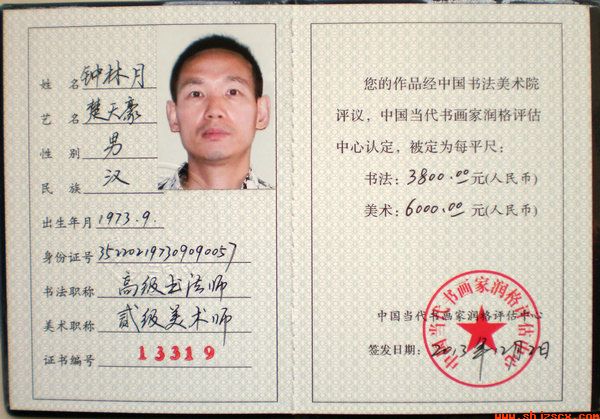 姓名 钟林月
艺名 楚天豪
性别 男
民族 汉
出生年月 1973.9.
身份证号 352202197309090057
书法职称 高级书法师
美术职称 贰级美术师
证书编号 13319
您的作品经中国书法美术院
评议，中国当代书画家润格评估
中心认定，被定为每平尺：
书法：3800.00元(人民币)
美术：6000.00元(人民币)
中国当代书画家润格评估中心
中国当代书画家润格评估中心
签发日期：2013年12月2日
www.shjzscx.com